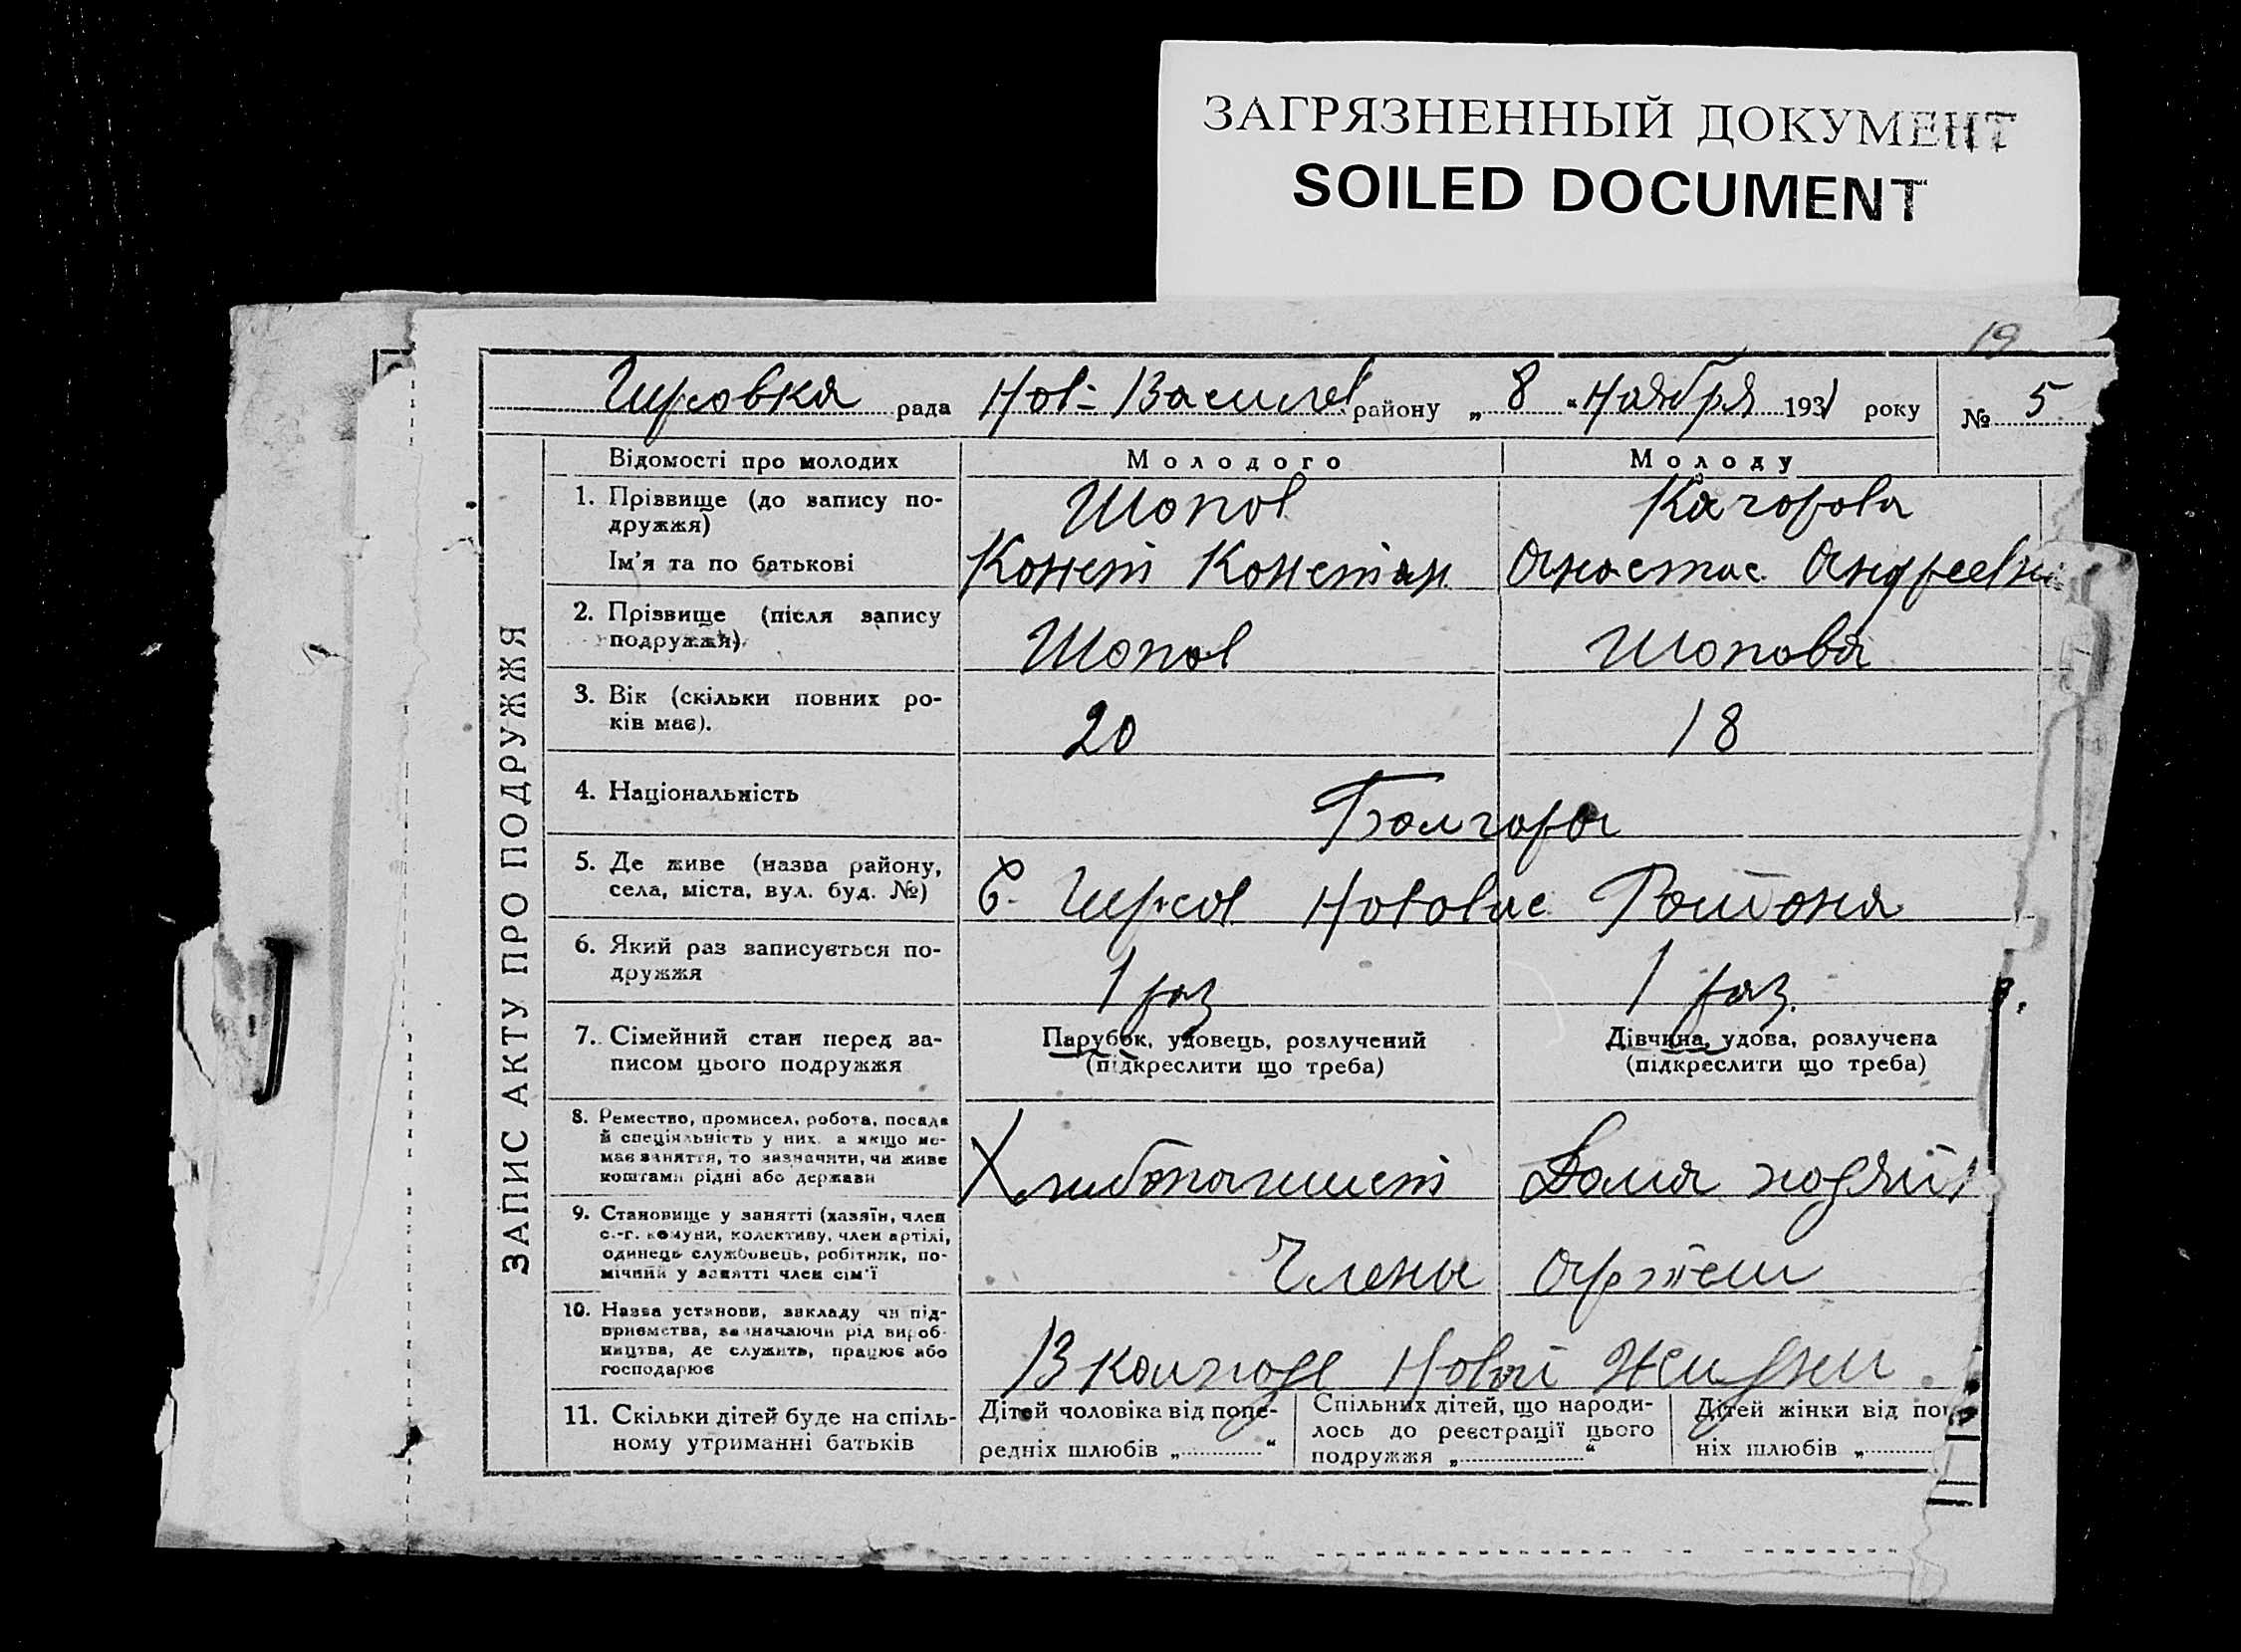 ЗАГРЯЗНЕННЫЙ ДОКУМЕНТ
SOILED DOCUMENT
19
Гирсовка рада Нов-Василев району „ 8 “ Ноября 1931 року № 5
ЗАПИС АКТУ ПРО ПОДРУЖЖЯ
Відомості про молодих Молодого Молоду
1. Прізвище (до запису по-
дружжя) Шопов Качорова
Ім'я та по батькові Конст Констан Анастас Андреевна
2. Прізвище (після запису
подружжя) Шопов Шопова
3. Вік (скільки повних ро-
ків має). 20 18
4. Національність Болгоры
5. Де живе (назва району,
села, міста, вул. буд. №) С. Гирсов Нововас Района
6. Який раз записується по-
дружжя 1 раз 1 раз.
7. Сімейний стан перед за-
писом цього подружжя
Парубок, удовець, розлучений
(підкреслити що треба)
Дівчина, удова, розлучена
(підкреслити що треба)
8. Ремество, промисел, робота, посада
й спеціяльність у них, а якщо не-
має заняття, то зазначити, чи живе
коштами рідні або держави
Хлибопашест Дома
9. Становище у занятті (хазяїн, член
с.-г. комуни, колективу, член артілі,
одинець службовець, робітник, по-
мічний у занятті член сім'ї
Члены Артели
10. Назва установи, закладу чи під-
приємства, зазначаючи рід вироб-
ництва, де служить, працює або
господарює
В колхозе Новой Жизни
11. Скільки дітей буде на спіль-
ному утриманні батьків
Дітей чоловіка від попе-
редніх шлюбів „ “
Спільних дітей, що народи-
лось до реєстрації цього
подружжя „ “
Дітей жінки від
ніх шлюбів „